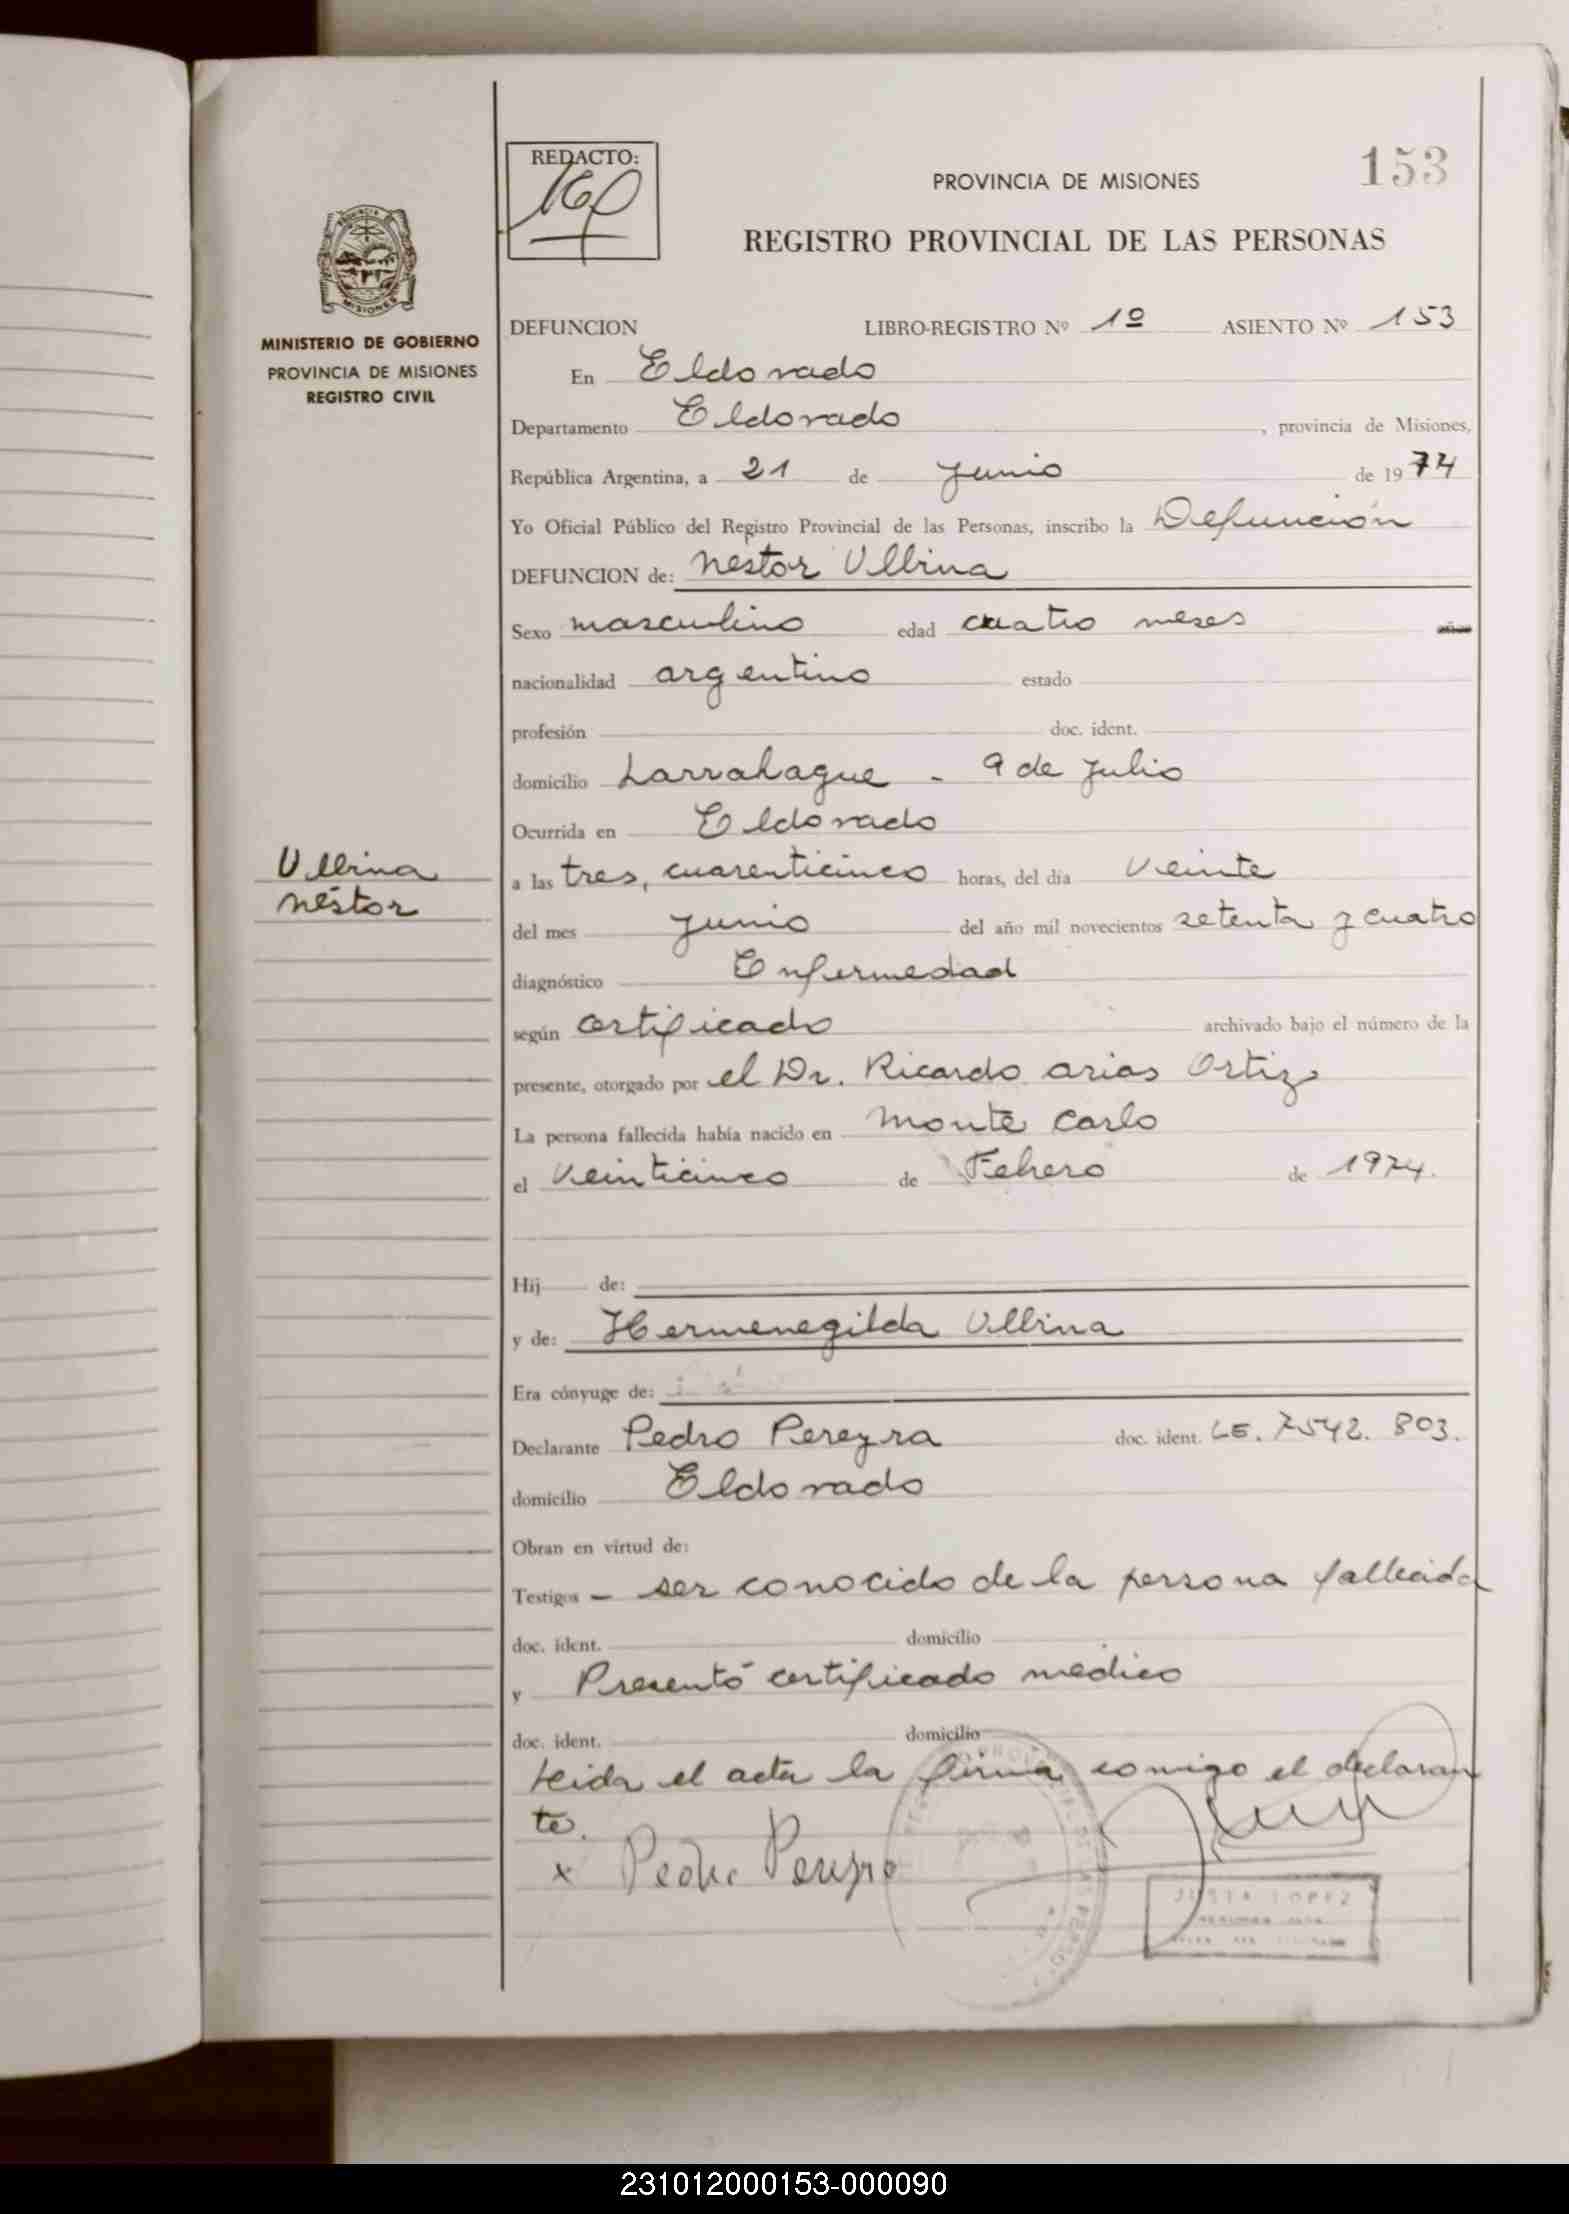 153
REDACTO:
PROVINCIA DE MISIONES
REGISTRO PROVINCIAL DE LAS PERSONAS
MINISTERIO DE GOBIERNO
PROVINCIA DE MISIONES
REGISTRO CIVIL
DEFUNCION LIBRO-REGISTRO Nº 1º ASIENTO Nº 153
En Eldorado
Departamento Eldorado, provincia de Misiones,
República Argentina, a 21 de junio de 1974
Yo Oficial Público del Registro Provincial de las Personas, inscribo la Defunción
DEFUNCION de: Néstor Ullrina
Sexo masculino edad cuatro meses años
nacionalidad argentino estado
profesión doc. ident.
domicilio Larrahague - 9 de julio
Ocurrida en Eldorado
Ullrina
Néstor
a las tres, cuarenticinco horas, del día Veinte
del mes junio del año mil novecientos setenta y cuatro
diagnóstico Enfermedad
según certificado archivado bajo el número de la
presente, otorgado por el Dr. Ricardo Arias Ortiz
La persona fallecida había nacido en Monte Carlo
el Veinticinco de Febrero de 1974.
Hij de:
y de: Hermenegilda Ullrina
Era cónyuge de:
Declarante Pedro Pereyra doc. ident. LE. 7542.803.
domicilio Eldorado
Obran en virtud de:
Testigos - ser conocido de la persona fallecida
doc. ident. domicilio
y Presentó certificado médico
doc. ident. domicilio
Leida el acta la firma comigo el declaran
te.
x Pedro Pereyra
JUSTA LOPEZ
231012000153-000090